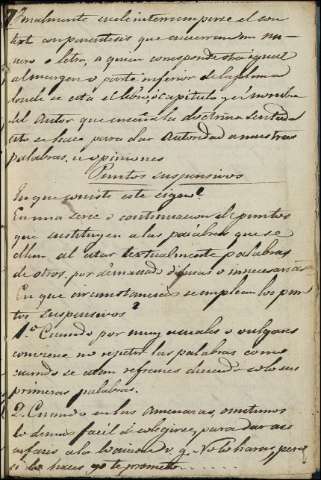 7º Finalmente suele interrumpirse el con-
testo con parentesis que encierran nu-
mero o letra, a quien corresponde otro igual
al margen o parte inferior de la plana
donde se está el libro, o Capitulo y el nombre
del Autor que enseña la doctrina sentada
esto se hace para dar autoridad a nuestras
palabras, u opiniones
Puntos suspensivos
En que consiste este signo?
En una serie o continuacion de puntos
que sustituyen a las palabras que se
callan al citar textualmente palabras
de otros, por demasiado difusas o innecesarias
En que circunstancias se emplean los pun-
tos suspensivos?
1.º Cuando por muy usuales o vulgares
conviene no repetir las palabras como
cuando se citan refranes diciendo solo sus
primeras palabras.
2.º Cuando en las amenazas, omitimos
lo demas facil de colegirse, para dar a
la v. g. No lo haras, pero
si lo haces yo te prometo.......